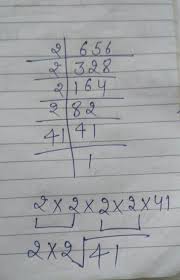 2 656
2 328
2 164
2 82
41 41
1
2×2×2×2×41
2×2√41